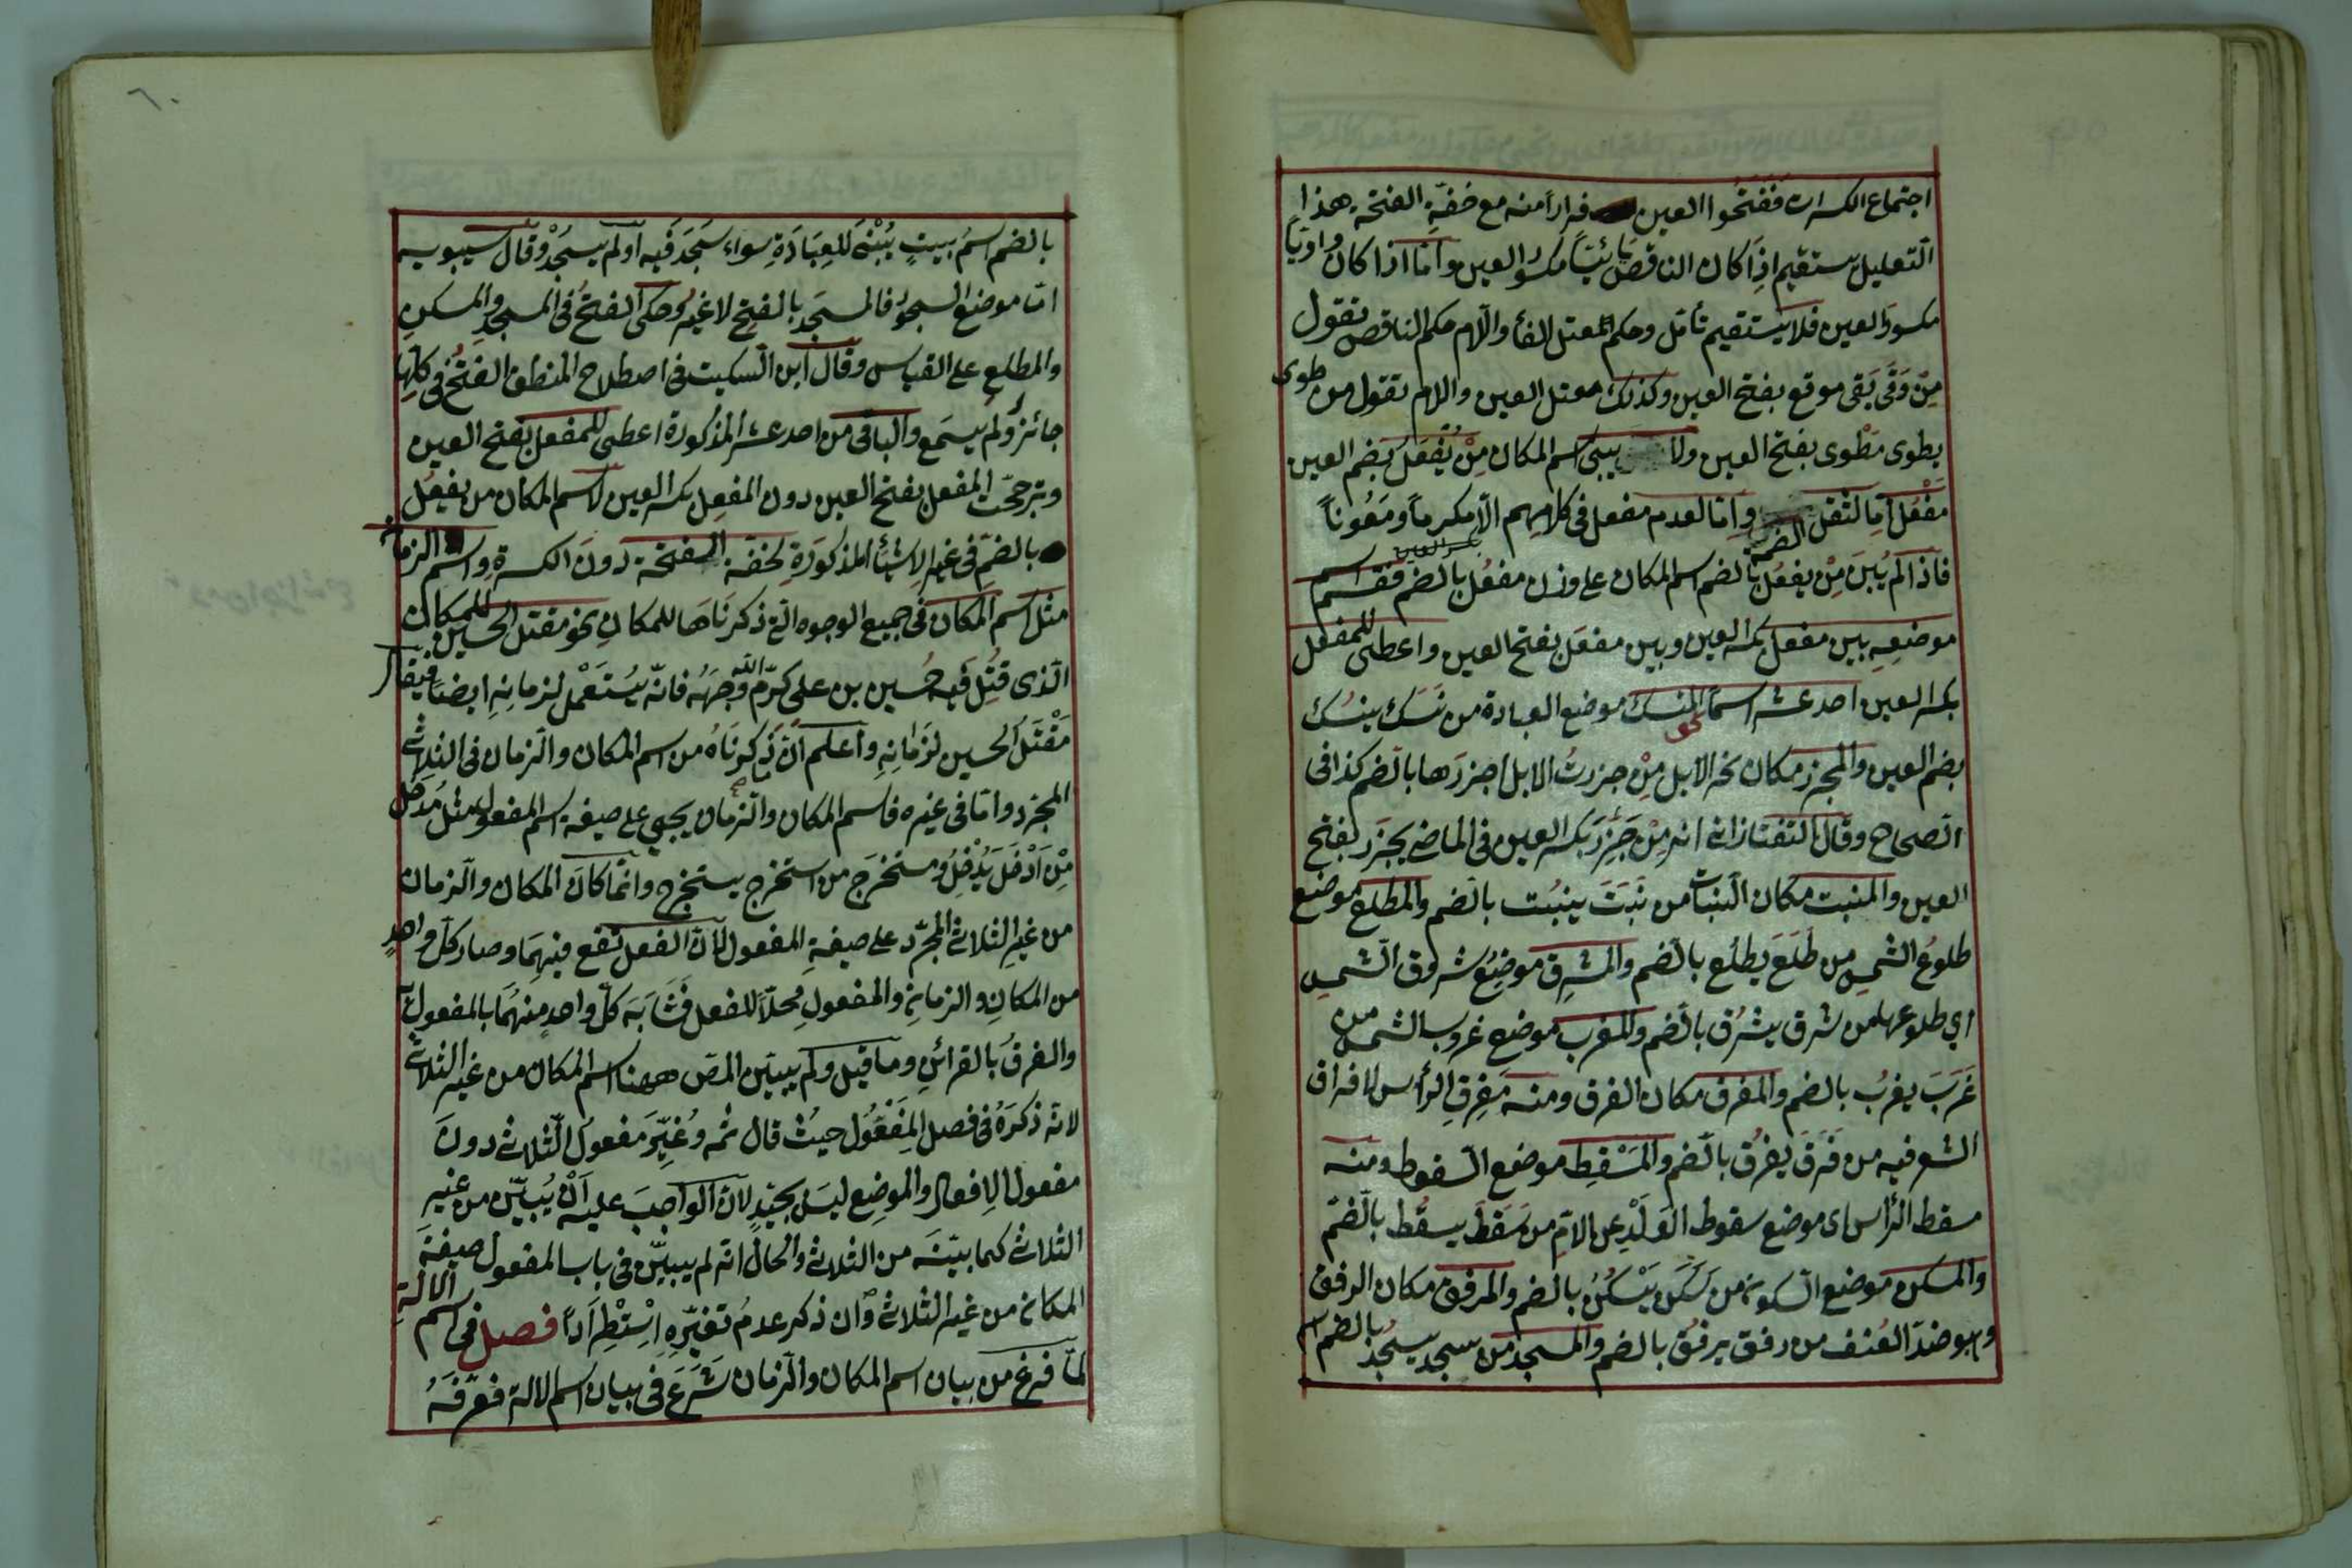 اجتماع الكسرات ففَتَحُوا العين فرارًا منه مع خفّةِ الفتحة هذا
التّعليل يستقيم اذا كان الناقص يائيّاً مكسور العين وامّا اذا كان واويّا
مكسور العين فلا يستقيم تأمّل وحكم المعتل الفأ واللّام حكم الناقص تقول
مِنْ وَقَى يَقى موقع بفتح العين وكذلك معتل العين واللام تقول من طوى
يطوى مَطْوى بفتح العين ولا يبنى اسم المكان مِنْ يَفْعُلُ بضم العين
مَفْعُل اما لثقل الضمة واِمّا لعدم مفعل فى كلامهم الّا مكرماً ومَعُوناً
فاذا لم يُبنَ مِنْ يفعُل بالضم اسم المكان على وزن مفعُل بالضم فقسم
موضعِهِ بين مفعِل بكسر العين وبين مفعَل بفتح العين واعطى للمفعل
بكسر العين احد عشر اسماً نحو المنسك موضع العبادة من نَسَك ينسُك
بضم العين والمجزر مكان نحر الابل مِنْ جزرتُ الابل اجزرها بالضم كذا فى
الصحاح وقال التفتازانى انه مِنْ جَزِرَ بكسر العين فى الماضى يجزَر بفتح
العين والمنبت مكان النبات من نَبَتَ ينبُت بالضم والمطلع موضع
طلوع الشمس من طَلَعَ يطلُع بالضم والمشرِق موضِعُ شروق الشمس
اي طلوعها من شرق يشرُق بالضم والمغرب موضع غروب الشمس من
غَرَبَ يغرُب بالضم والمفرق مكان الفرق ومنه مَفرِقِ الرأس لافراق
الشعر فيه من فَرَقَ يفرُق بالضم والمَسْقِط موضع السقوط ومنه
مسقط الرأس اى موضع سقوط الوَلَدِ عن الامّ من سَقَطَ يسقُط بالضّم
والمسكن موضع السكون من سَكَنَ يَسْكُنُ بالضم والمرفق مكان الرفق
وهو ضدّ العُنف من رفق يرفُق بالضم والمسجد من سجد يسجُد بالضم
بالضم اسمُ بيتٍ يُبْنَى للعِبَادَةِ سواء سَجَدَ فيه او لم يسجُدْ وقال سيبويه
امّا موضع السجود فالمسجَد بالفتح لا غيرُ وحكى الفتحُ فى المسجد والمسكن
والمطلع على القياس وقال ابن السّكيت فى اصطلاح المنطق الفتحُ فى كلّها
جائز ولم يسمع والباقى من احد عشر المذكورة اعطى للمفعل بفتح العين
وترجحّت المفعل بفتح العين دون المفعِل بكسر العين لاسم المكان من يفعُل
بالضمّ فى غير الاشيأ المذكورَةِ لخفّة الفتحة دونَ الكسرة واسم الزمان
مثل اسم المكان فى جميع الوجوه الّتى ذكرنَاهَا للمكان نحو مقتل الحسين للمكان
الّذى قُتِلَ فيه حُسين بن على كرّم اللّه وجهَهُ فانّه يُستَعْمل لزمانِهِ ايضا فيقال
مَقْتَلُ الحسين لزمانِهِ واعلم انّ ما ذكرنَاهُ من اسم المكان والزمان فى الثلاثى
المجرّد وامّا فى غيره فاسم المكان والزّمان يجيئ على صيغة اسم المفعول مثل مُدخَل
مِنْ اَدْخَلَ يُدْخِلُ ومستخرَج من استخرج يستخرج وانّما كانَ المكان والزمان
من غيرِ الثلاثى المجرّد على صيغةِ المفعول لانّ الفعل تقع فيهِمَا وصار كلّ واحدٍ
من المكانِ والزمانِ والمفعولِ مَحلّاً للفعل فشَابَهَ كلّ واحدٍ منهُمَا بالمفعول
والفرقُ بالقرائنِ وما قيل ولم يبيّن المص ههنا اسم المكان من غير الثلاثى
لانّه ذكرَهُ فى فصل المَفْعُول حيثُ قال ثمّه وغُيّرَ مفعولُ الّثلاثى دون
مفعول الِافعال والموضِع ليسَ بجيّدٍ لانّ الواجبَ عليه اَنْ يُبيّن من غير
الثلاثى كما بيّنَه من الثلاثى والحال انّه لم يبيّن فى باب المفعول صيغةَ
المكان من غير الثلاثى وان ذكر عدمُ تغيّرِهِ اِسْتِطْرَاداً فصل فى اسم الالةِ
لمّا فرغ من بيان اسم المكان والزمان شَرَعَ فى بيان اسم الالة فعرّفَهُ
٦٠